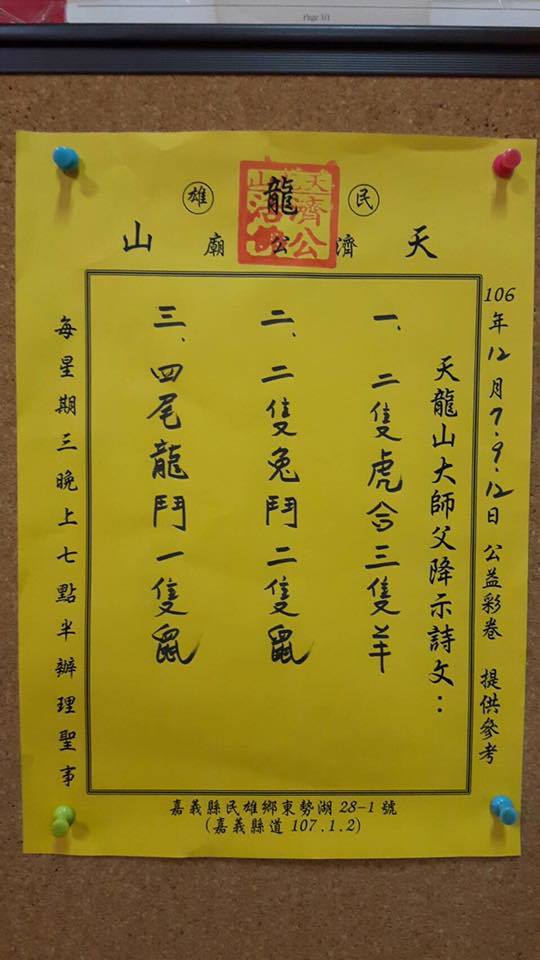 Page 1/1
民 龍 雄
天 濟 公 廟 山
天龍山
濟公
106年12月7.9.12日 公益彩卷 提供參考
天龍山大師父降示詩文:
一、二隻虎合三隻羊
二、二隻兔鬥二隻鼠
三、四尾龍鬥一隻鼠
每星期三晚上七點半辦理聖事
嘉義縣民雄鄉東勢湖 28-1 號
(嘉義縣道 107.1.2)